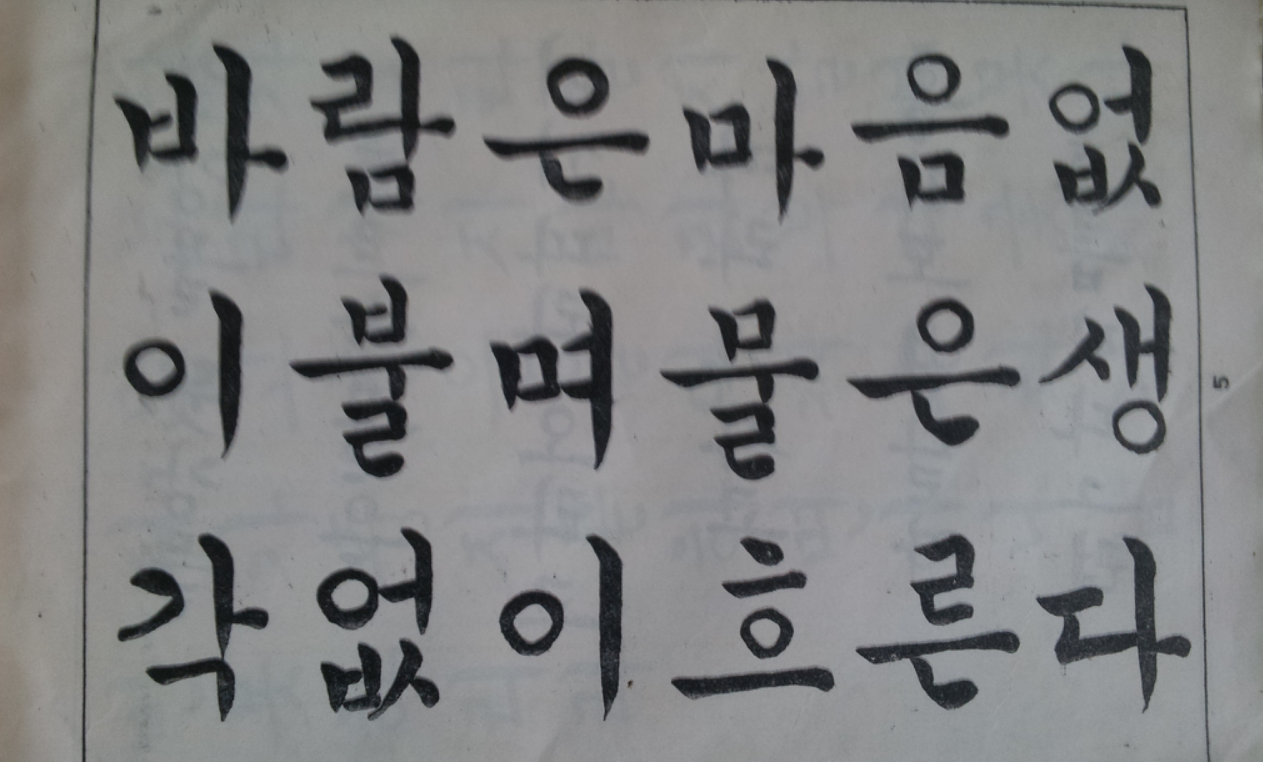 바람은마음없
이불며물은생
각없이흐른다
5